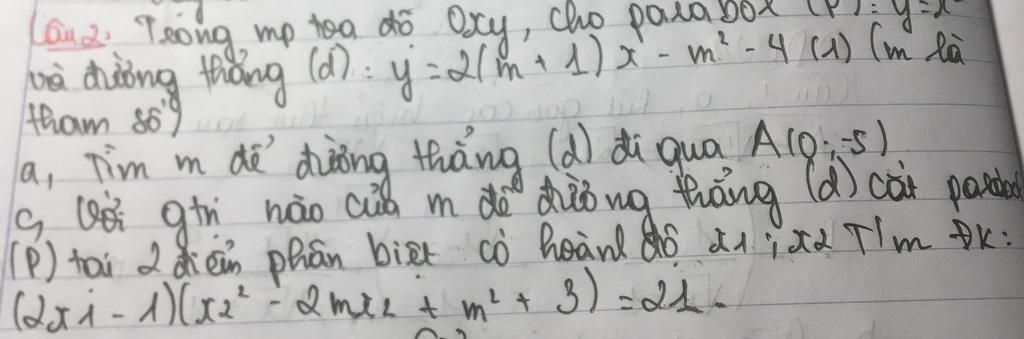 Câu 2. Trong mp tọa độ Oxy, cho parabol (P): y = x²
và đường thẳng (d): y = 2(m + 1)x - m² - 4 (1) (m là
tham số)
a, Tìm m để đường thẳng (d) đi qua A(0; -5)
c, Với gtrị nào của m để đường thẳng (d) cắt parabol
(P) tại 2 điểm phân biệt có hoành độ x1; x2 Tìm ĐK:
(2x1 - 1)(x2² - 2mx2 + m² + 3) = 21.